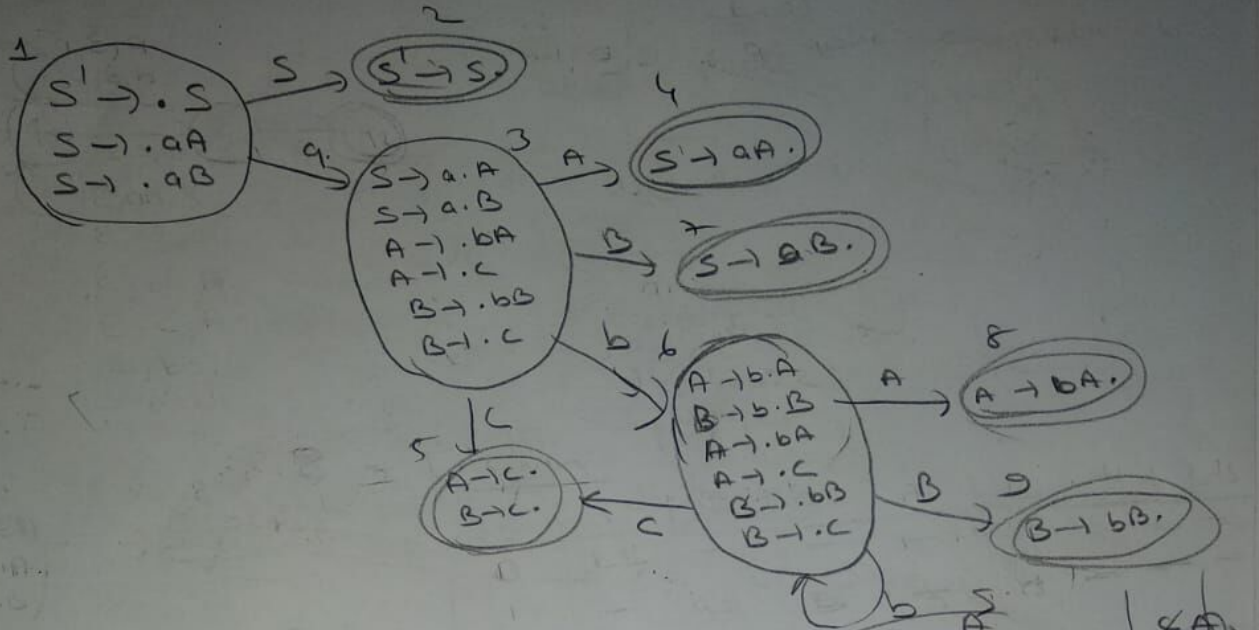 1
S' → . S
S → . aA
S → . aB
S
2
S' → S.
a
3
S → a.A
S → a.B
A → .bA
A → .c
B → .bB
B → .c
A
4
S' → aA.
B
7
S → aB.
b
6
A → b.A
B → b.B
A → .bA
A → .c
B → .bB
B → .c
A
8
A → bA.
B
9
B → bB.
C
5
A → c.
B → c.
C
b
S
A